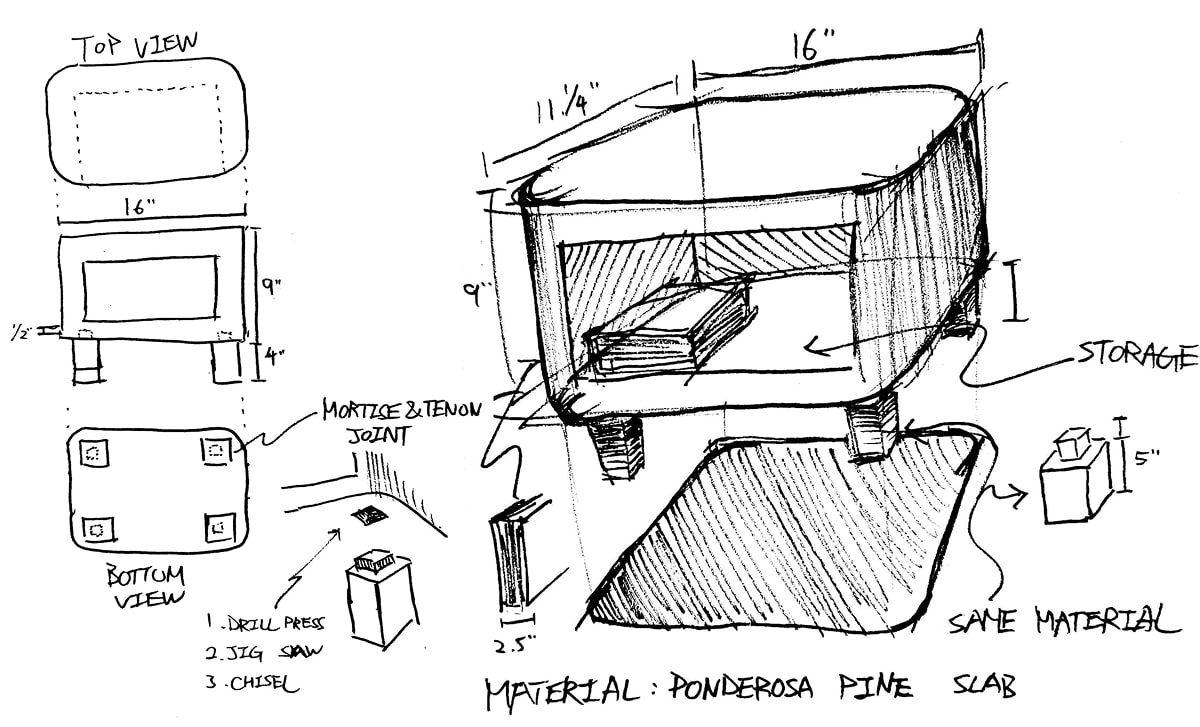 TOP VIEW
16"
9"
1/2"
4"
MORTISE & TENON
JOINT
BOTTOM
VIEW
1. DRILL PRESS
2. JIG SAW
3. CHISEL
16"
11.1/4"
9"
STORAGE
5"
2.5"
SAME MATERIAL
MATERIAL : PONDEROSA PINE SLAB